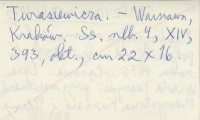 Turasiewicza. – Warszawa,
Kraków. Ss. nlb. 4, XIV,
393, tabl., cm 22 x 16.